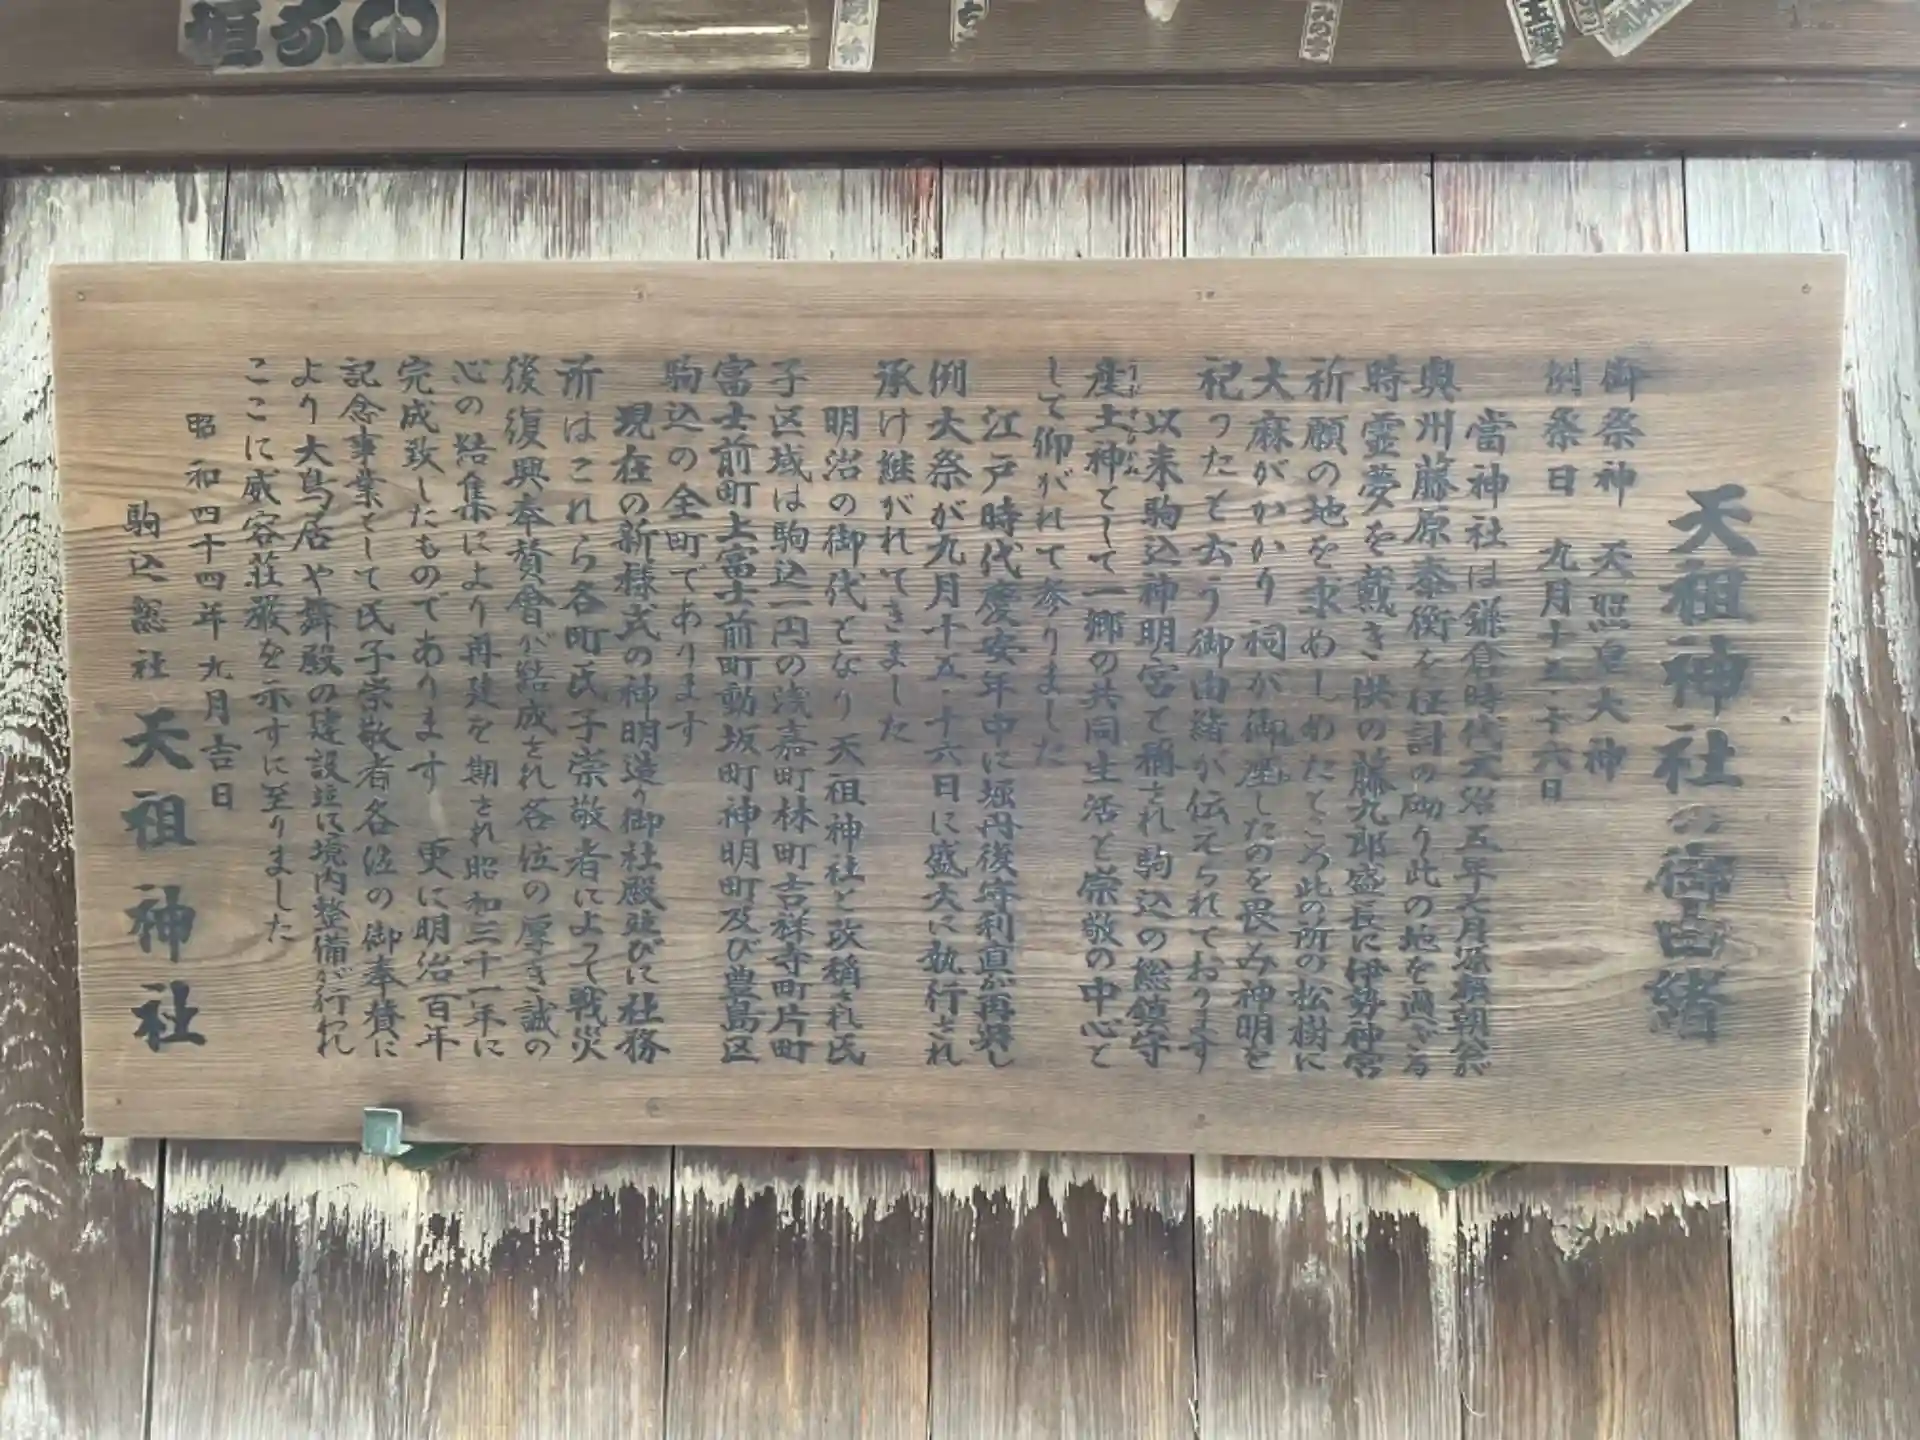 天祖神社の御由緒
御祭神　天照皇大神
例祭日　九月十五・十六日
當神社は鎌倉時代文治五年七月源頼朝公が
奥州藤原泰衡を征討の砌り此の地を過ぎる
時霊夢を戴き供の藤九郎盛長に伊勢神宮
祈願の地を求めしめたところ此の所の松樹に
大麻がかかり祠が御座したのを畏み神明を
祀ったと云う御由緒が伝えられております
以来駒込神明宮と稱され駒込の総鎮守
産土神として一郷の共同生活と崇敬の中心と
して仰がれて参りました
江戸時代慶安年中に堀丹後守利直が再興し
例大祭が九月十五・十六日に盛大に執行され
承け継がれてきました
明治の御代となり天祖神社と改稱され氏
子区域は駒込一円の浅嘉町林町吉祥寺町片町
富士前町上富士前町動坂町神明町及び豊島区
駒込の全町であります
現在の新様式の神明造り御社殿並びに社務
所はこれら各町氏子崇敬者によって戦災
後復興奉賛會が結成され各位の厚き誠の
心の結集により再建を期され昭和三十一年に
完成致したものであります　更に明治百年
記念事業として氏子崇敬者各位の御奉賛に
より大鳥居や舞殿の建設並に境内整備が行われ
ここに威容荘厳を示すに至りました
昭和四十四年九月吉日
駒込総社　天祖神社